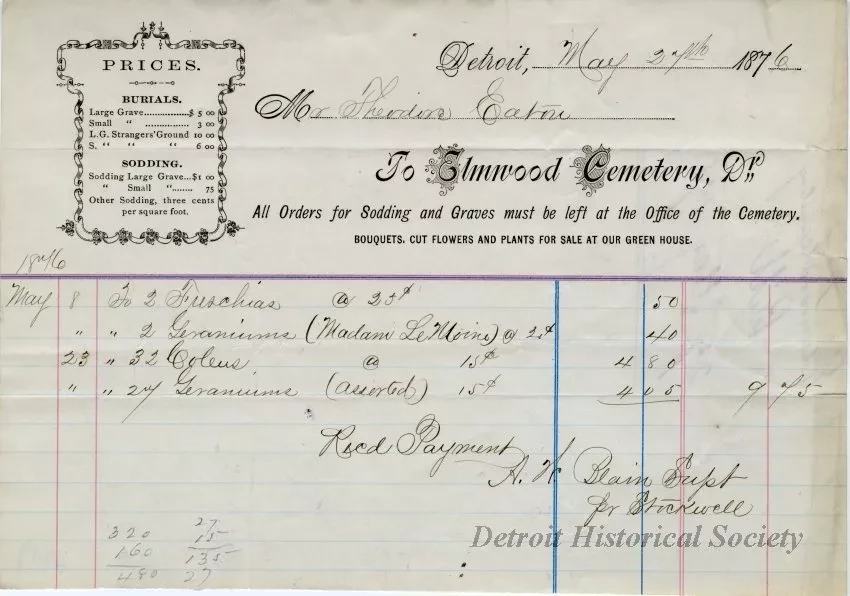 PRICES.
BURIALS.
Large Grave................$ 5 00
Small " ................ 3 00
L.G. Strangers' Ground 10 00
S. " " " 6 00
SODDING.
Sodding Large Grave...$1 00
" Small "....... 75
Other Sodding, three cents
per square foot.
Detroit, May 27th 1876
Mr Theodore Eaton
To Elmwood Cemetery, Dr.
All Orders for Sodding and Graves must be left at the Office of the Cemetery.
BOUQUETS, CUT FLOWERS AND PLANTS FOR SALE AT OUR GREEN HOUSE.
1876
May 8 To 2 Fuschias @ 25¢ 50
" " 2 Geraniums (Madam LeMoine) @ 2 ¢ 40
23 " 32 Coleus @ 15¢ 4 80
" " 27 Geraniums (assorted) 15¢ 4 05 9 75
Recd Payment
A. W. Blain Supt
pr Stockwell
320 27
160 15
480 135
27
Detroit Historical Society